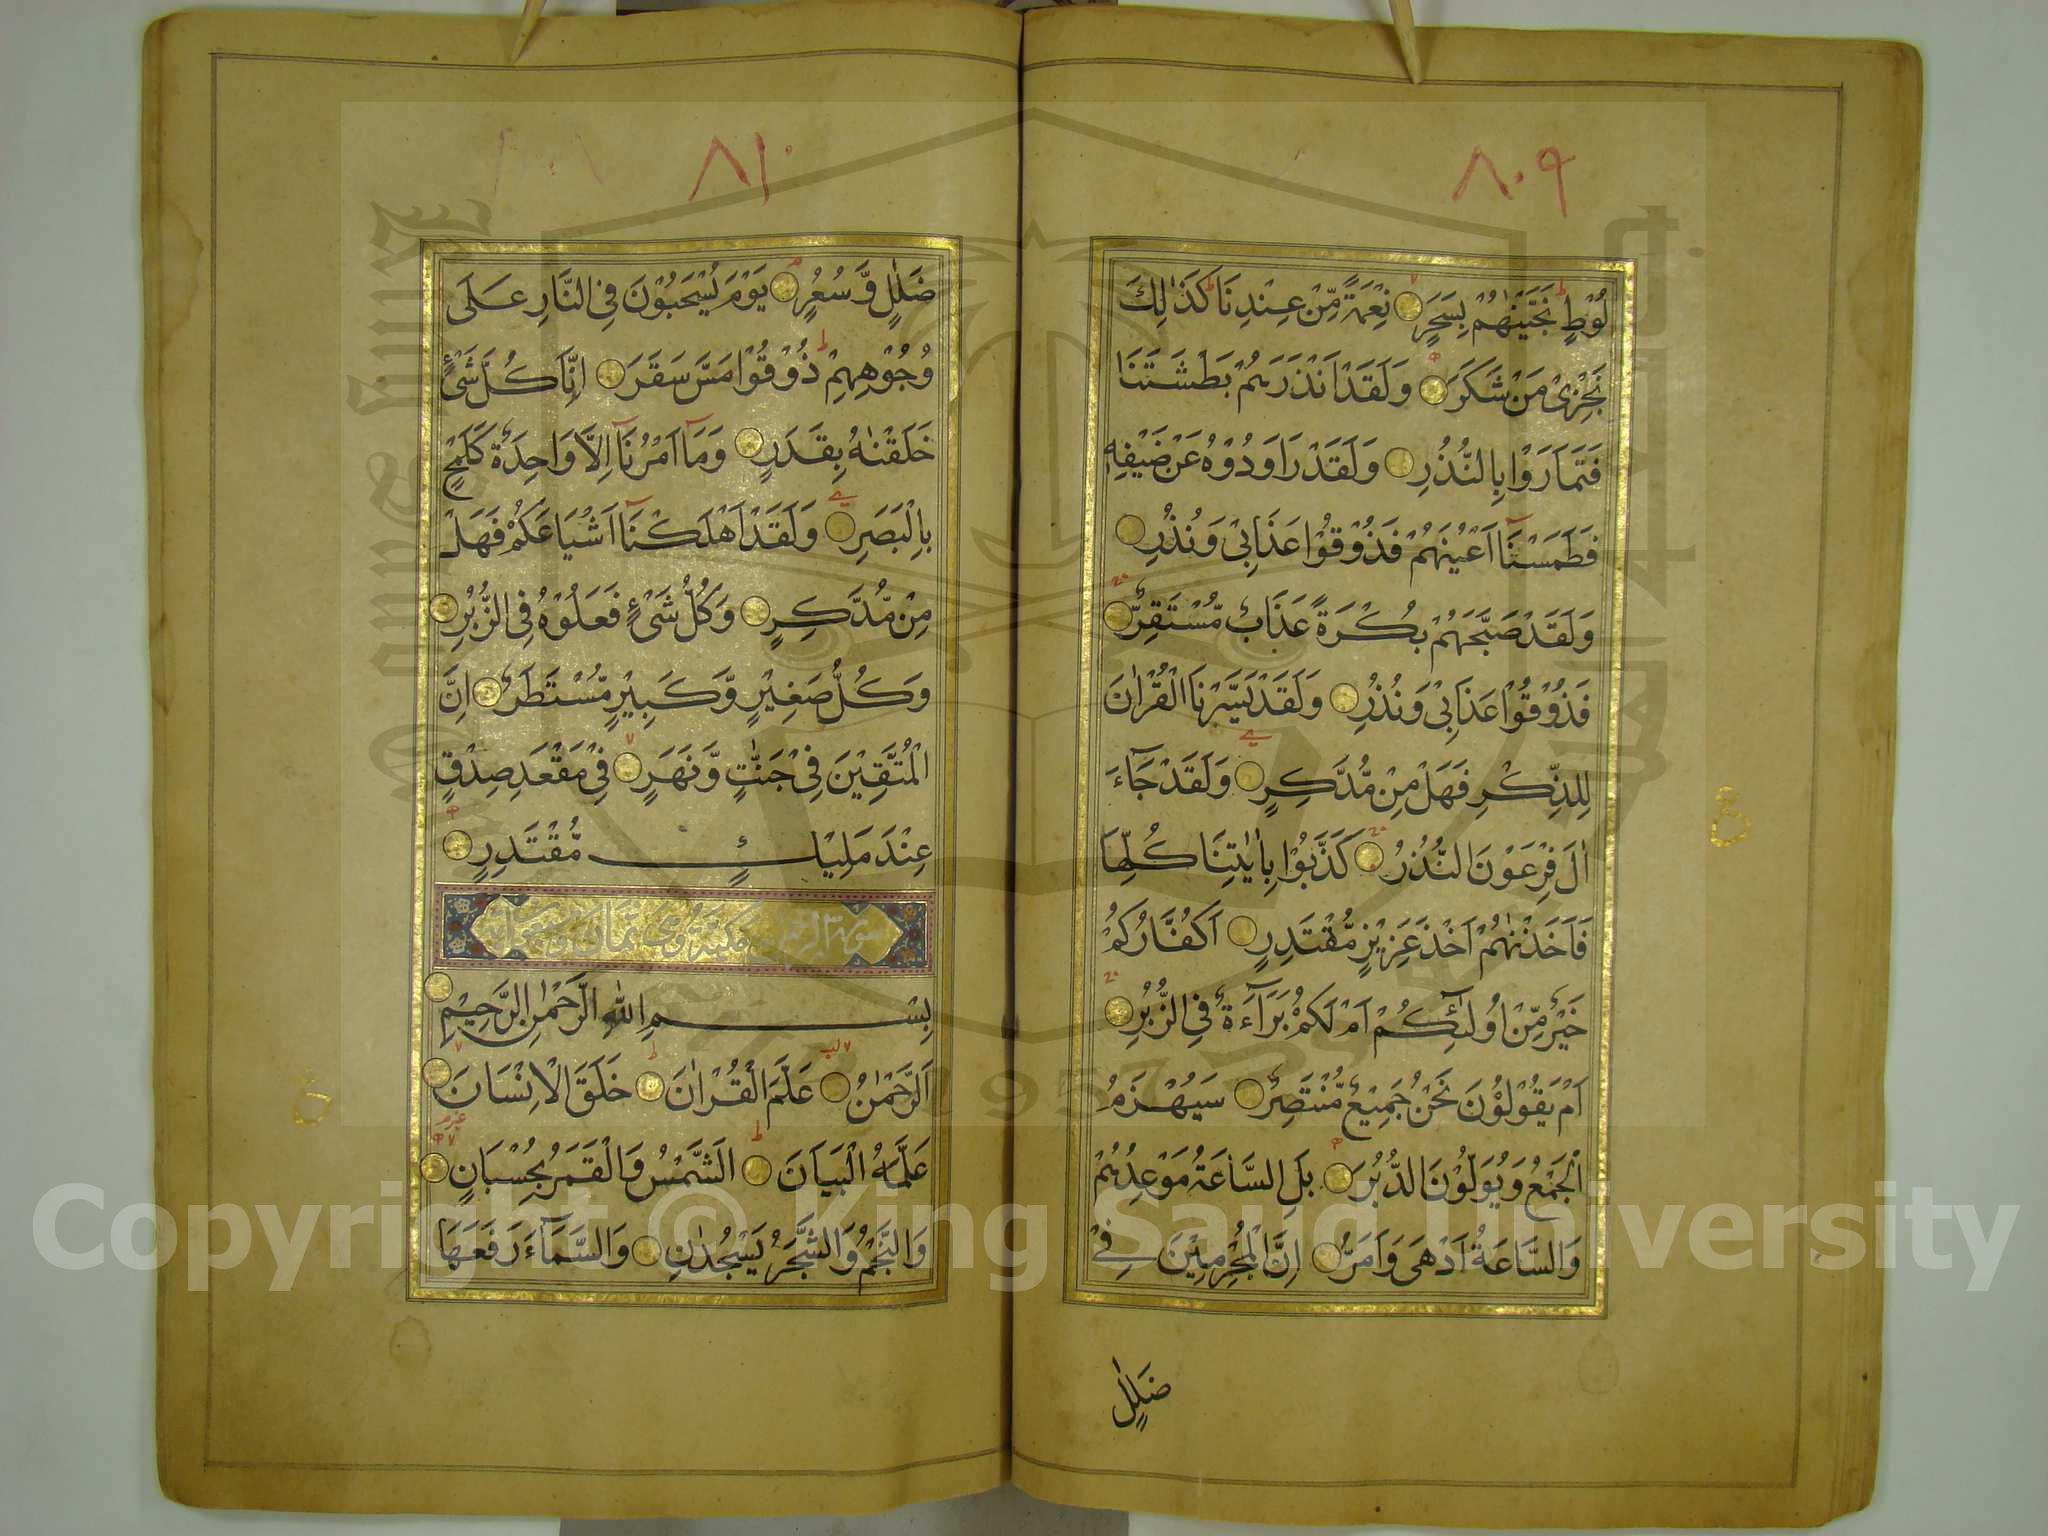 ٨٠٩
لُوْطٍ نَجَّيْنٰهُمْ بِسَحَرٍ نِعْمَةً مِّنْ عِنْدِنَا كَذٰلِكَ
نَجْزِىْ مَنْ شَكَرَ وَلَقَدْ اَنْذَرَهُمْ بَطْشَتَنَا
فَتَمَارَوْا بِالنُّذُرِ وَلَقَدْ رَاوَدُوْهُ عَنْ ضَيْفِهٖ
فَطَمَسْنَآ اَعْيُنَهُمْ فَذُوْقُوْا عَذَابِىْ وَنُذُرِ
وَلَقَدْ صَبَّحَهُمْ بُكْرَةً عَذَابٌ مُّسْتَقِرٌّ
فَذُوْقُوْا عَذَابِىْ وَنُذُرِ وَلَقَدْ يَسَّرْنَا الْقُرْاٰنَ
لِلذِّكْرِ فَهَلْ مِنْ مُّدَّكِرٍ وَلَقَدْ جَآءَ
اٰلَ فِرْعَوْنَ النُّذُرُ كَذَّبُوْا بِاٰيٰتِنَا كُلِّهَا
فَاَخَذْنٰهُمْ اَخْذَ عَزِيْزٍ مُّقْتَدِرٍ اَكُفَّارُكُمْ
خَيْرٌ مِّنْ اُولٰٓئِكُمْ اَمْ لَكُمْ بَرَآءَةٌ فِى الزُّبُرِ
اَمْ يَقُوْلُوْنَ نَحْنُ جَمِيْعٌ مُّنْتَصِرٌ سَيُهْزَمُ
الْجَمْعُ وَيُوَلُّوْنَ الدُّبُرَ بَلِ السَّاعَةُ مَوْعِدُهُمْ
وَالسَّاعَةُ اَدْهٰى وَاَمَرُّ اِنَّ الْمُجْرِمِيْنَ فِىْ
ضَلٰلٍ
٨١٠
ضَلٰلٍ وَّسُعُرٍ يَوْمَ يُسْحَبُوْنَ فِى النَّارِ عَلٰى
وُجُوْهِهِمْ ذُوْقُوْا مَسَّ سَقَرَ اِنَّا كُلَّ شَىْءٍ
خَلَقْنٰهُ بِقَدَرٍ وَمَآ اَمْرُنَآ اِلَّا وَاحِدَةٌ كَلَمْحٍ
بِالْبَصَرِ وَلَقَدْ اَهْلَكْنَآ اَشْيَاعَكُمْ فَهَلْ
مِنْ مُّدَّكِرٍ وَكُلُّ شَىْءٍ فَعَلُوْهُ فِى الزُّبُرِ
وَكُلُّ صَغِيْرٍ وَّكَبِيْرٍ مُّسْتَطَرٌ اِنَّ
الْمُتَّقِيْنَ فِىْ جَنّٰتٍ وَّنَهَرٍ فِىْ مَقْعَدِ صِدْقٍ
عِنْدَ مَلِيْكٍ مُّقْتَدِرٍ
سورة الرحمن مكية وهى ثمان وسبعون اية
بِسْمِ اللّٰهِ الرَّحْمٰنِ الرَّحِيْمِ
اَلرَّحْمٰنُ عَلَّمَ الْقُرْاٰنَ خَلَقَ الْاِنْسَانَ
عَلَّمَهُ الْبَيَانَ اَلشَّمْسُ وَالْقَمَرُ بِحُسْبَانٍ
وَالنَّجْمُ وَالشَّجَرُ يَسْجُدٰنِ وَالسَّمَآءَ رَفَعَهَا
Copyright © King Saud University
1957